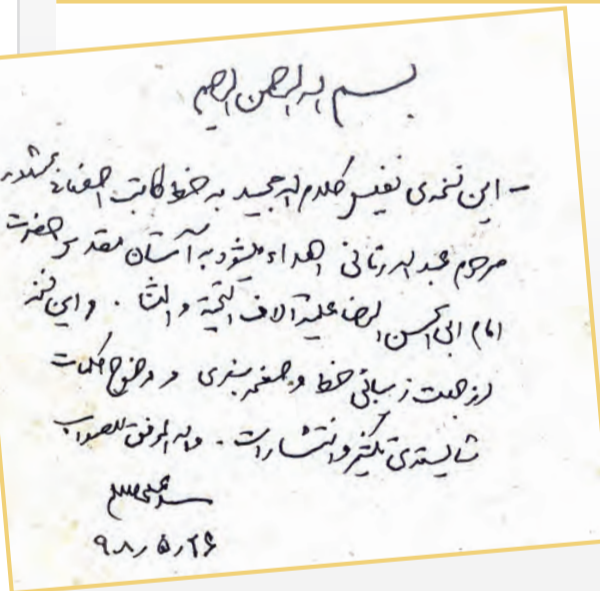 بسم الله الرحمن الرحیم
- این نسخه‌ی نفیس کلام الله مجید به خط کاتب
مرحوم عبد الله اهداء میشود به آستان مقدس حضرت
امام ابی الحسن الرضا علیه آلاف التحیة و الثنا . و این نسخه
از جهت زیبائی خط و صفحه بندی و وضوح کلمات
شایسته‌ی تکثیر و انتشار است . والله الموفق للصواب
۹۸/۵/۲۶